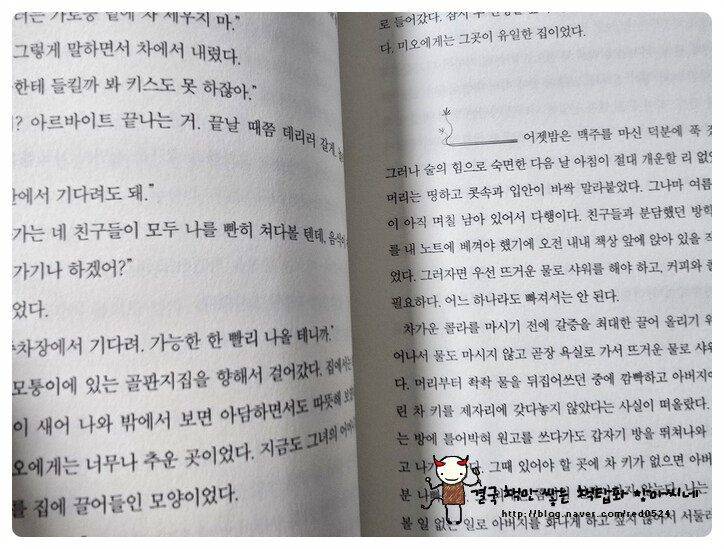 러는 가로등 밑에 차 세우지 마."
그렇게 말하면서 차에서 내렸다.
한테 들킬까 봐 키스도 못 하잖아."
? 아르바이트 끝나는 거. 끝날 때쯤 데리러 갈게.
안에서 기다려도 돼."
가는 네 친구들이 모두 나를 빤히 쳐다볼 텐데, 음식이
가기나 하겠어?"
었다.
주차장에서 기다려. 가능한 한 빨리 나올 테니까."
모퉁이에 있는 골판지집을 향해서 걸어갔다. 집에서는
이 새어 나와 밖에서 보면 아담하면서도 따뜻해 보
오에게는 너무나 추운 곳이었다. 지금도 그녀의 어머니
를 집에 끌어들인 모양이었다.
로 들어갔다. 잠시 후
다. 미오에게는 그곳이 유일한 집이었다.
어젯밤은 맥주를 마신 덕분에 푹
그러나 술의 힘으로 숙면한 다음 날 아침이 절대 개운할 리 없었
머리는 띵하고 콧속과 입안이 바싹 말라붙었다. 그나마 여름
이 아직 며칠 남아 있어서 다행이다. 친구들과 분담했던 방학
를 내 노트에 베껴야 했기에 오전 내내 책상 앞에 앉아 있을 작
었다. 그러자면 우선 뜨거운 물로 샤워를 해야 하고, 커피와 콜
필요하다. 어느 하나라도 빠져서는 안 된다.
차가운 콜라를 마시기 전에 갈증을 최대한 끌어 올리기 위
어나서 물도 마시지 않고 곧장 욕실로 가서 뜨거운 물로 샤워
다. 머리부터 촥촥 물을 뒤집어쓰던 중에 깜빡하고 아버지에
린 차 키를 제자리에 갖다놓지 않았다는 사실이 떠올랐다.
는 방에 틀어박혀 원고를 쓰다가도 갑자기 방을 뛰쳐나와
고 나가 그때 있어야 할 곳에 차 키가 없으면 아버지
분 나
볼 일 없는 일로 아버지를 화나게 하고 싶지 않아서 서둘러
결국 책만 쌓는 책탑화
http://blog.naver.com/red0524